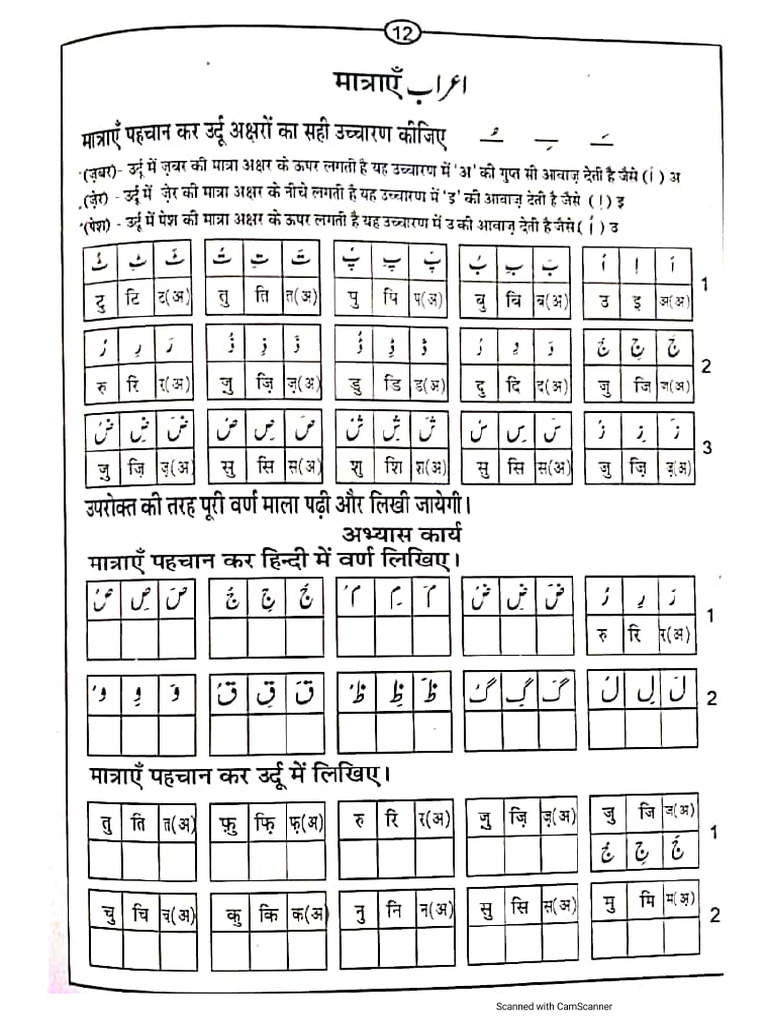 12
मात्राएँ اعراب
मात्राएँ पहचान कर उर्दू अक्षरों का सही उच्चारण कीजिए ـُ ـِ ـَ
(ज़बर)- उर्दू में ज़बर की मात्रा अक्षर के ऊपर लगती है यह उच्चारण में 'अ' की गुप्त सी आवाज़ देती है जैसे (اَ) अ
(ज़ेर) - उर्दू में ज़ेर की मात्रा अक्षर के नीचे लगती है यह उच्चारण में 'इ' की आवाज़ देती है जैसे (اِ) इ
(पेश) - उर्दू में पेश की मात्रा अक्षर के ऊपर लगती है यह उच्चारण में उ की आवाज़ देती है जैसे (اُ) उ
اَ اِ اُ بَ بِ بُ پَ پِ پُ تَ تِ تُ ٹَ ٹِ ٹُ
1
टु टि ट(अ) तु ति त(अ) पु पि प(अ) बु बि ब(अ) उ इ अ(अ)
جَ جِ جُ دَ دِ دُ ڈَ ڈِ ڈُ ذَ ذِ ذُ رَ رِ رُ
2
रु रि र(अ) जु ज़ि ज़(अ) डु डि ड(अ) दु दि द(अ) जु जि ज(अ)
زَ زِ زُ سَ سِ سُ شَ شِ شُ صَ صِ صُ ضَ ضِ ضُ
3
जु ज़ि ज़(अ) सु सि स(अ) शु शि श(अ) सु सि स(अ) जु ज़ि ज़(अ)
उपरोक्त की तरह पूरी वर्ण माला पढ़ी और लिखी जायेगी।
अभ्यास कार्य
मात्राएँ पहचान कर हिन्दी में वर्ण लिखिए।
رَ رِ رُ ضَ ضِ ضُ مَ مِ مُ جَ جِ جُ صَ صِ صُ
1
रु रि र(अ)
لَ لِ لُ گَ گِ گُ ظَ ظِ ظُ قَ قِ قُ وَ وِ وُ
2
मात्राएँ पहचान कर उर्दू में लिखिए।
तु ति त(अ) फ़ु फ़ि फ़(अ) रु रि र(अ) जु ज़ि ज़(अ) जु जि ज(अ)
1
جَ جِ جُ
चु चि च(अ) कु कि क(अ) नु नि न(अ) सु सि स(अ) मु मि म(अ)
2
Scanned with CamScanner